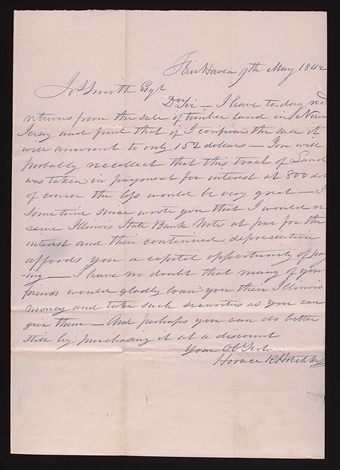 Fair Haven 9th May 1842
Js Smith Esqr
Dr Sir — I have to day
returns from the sale of timber land in New
Jersey and find that if I confirm the sale it
will amount to only 152 dollars — You will
probably recollect that this tract of Land
was taken in payment for interest at 800 dol
of course the loss would be very great — I
some time since wrote you that I would
Illinois State Bank Notes at par for the
interest and their continued depreciation
affords you a capital opportunity of pa
ying — I have no doubt that many of your
friends would gladly loan you their Illinois
money and take such securities as you can
give them — And perhaps you can do better
still by purchasing it at a discount
Your Ob Servt
Horace R Hotchkiss